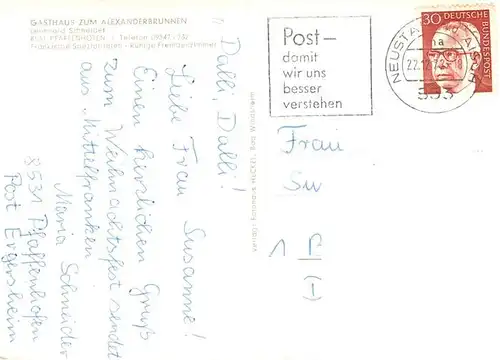 GASTHAUS ZUM ALEXANDERBRUNNEN
Leonhard Schneider
8531 PFAFFENHOFEN / Telefon 09847 - 232
Fränkische Spezialitäten - Ruhige Fremdenzimmer
"Dalli, Dalli!
Liebe Frau Susanne!
Einen herzlichen Gruß
zum Weihnachtsfest sendet
aus Mittelfranken
Maria Schneider
8531 Pfaffenhofen
Post Ergersheim
Verlag: Fotohaus HECKEL, Bad Windsheim
Post —
damit
wir uns
besser
verstehen
NEUSTADT AISCH
na
22.12.72
853
30 DEUTSCHE BUNDESPOST
Frau
Su
1 B
(-)